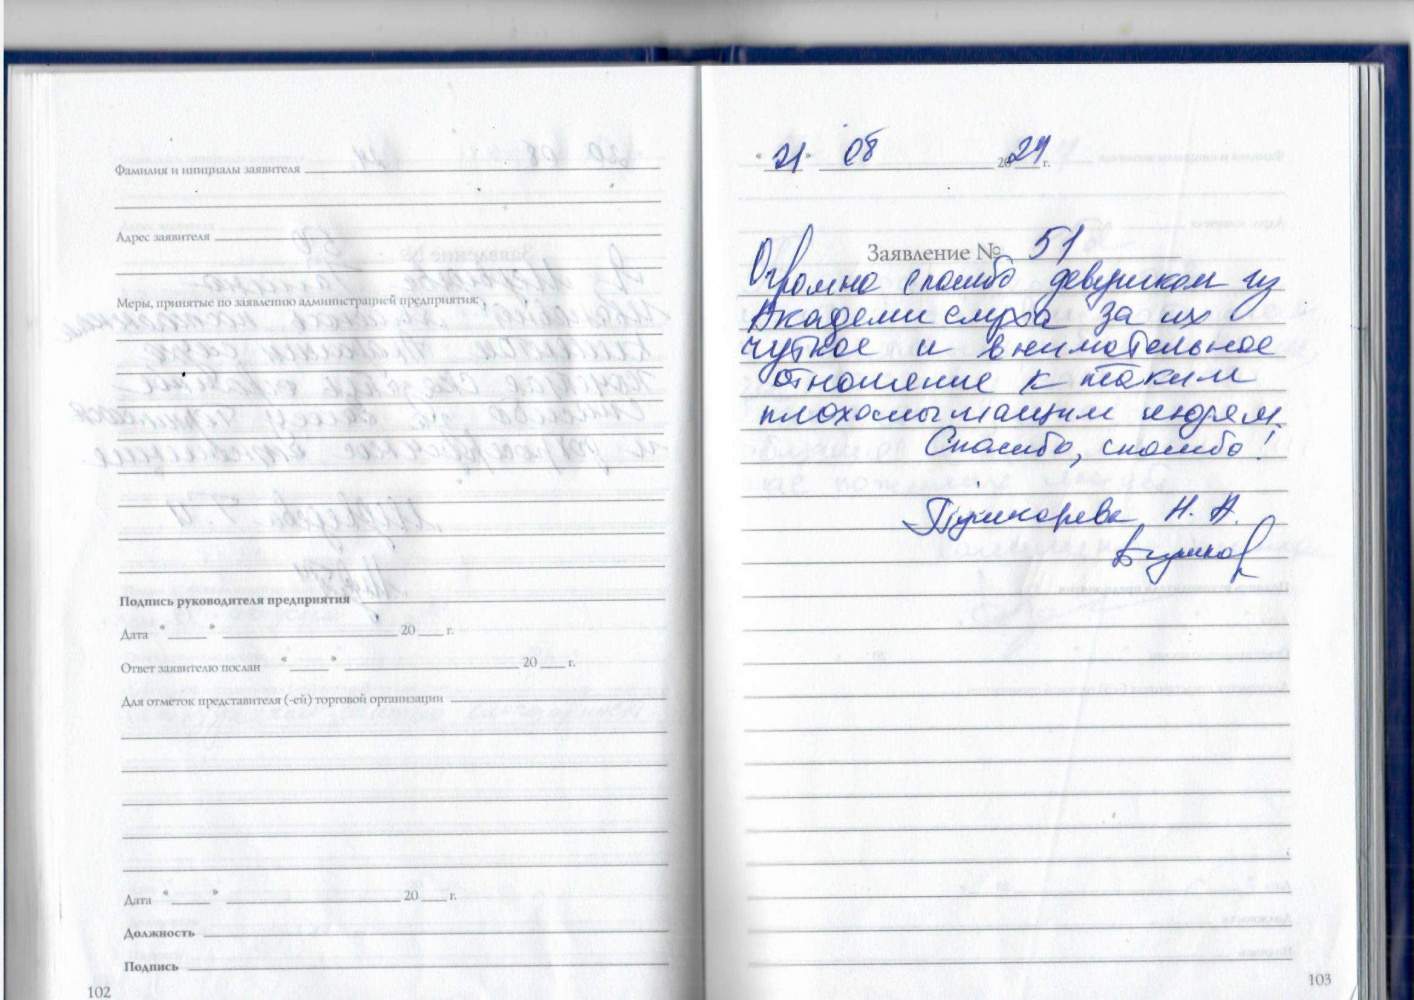 Фамилия и инициалы заявителя
Адрес заявителя
Меры, принятые по заявлению администрацией предприятия:
Подпись руководителя предприятия
Дата " " 20 г.
Ответ заявителю послан " " 20 г.
Для отметок представителя (-ей) торговой организации
Дата " " 20 г.
Должность
Подпись
102
"21" 08 2024 г.
Заявление № 51
Огромно спасибо девушкам из
Академи слуха за их
чуткое и внимательное
отношение к таким
плохослышащим людям.
Спасибо, спасибо!
Пушкарева Н. А.
103